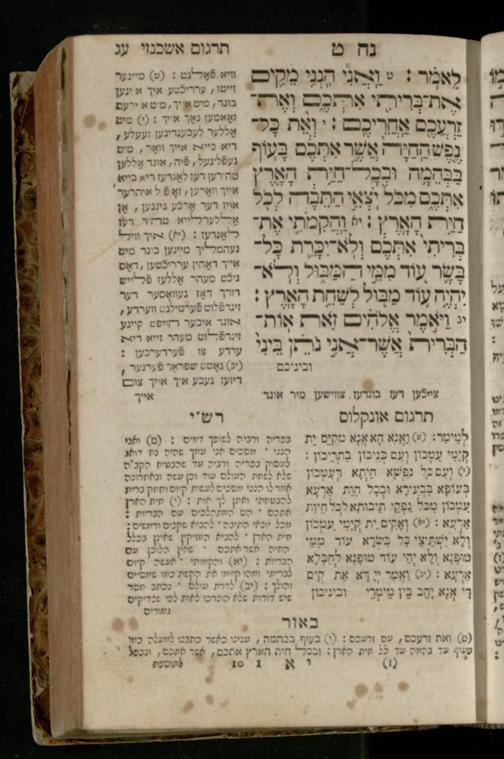 נח ט תרגום אשכנזי עג
לֵאמֹר : ט וַאֲנִי הִנְנִי מֵקִים
אֶת־בְּרִיתִי אִתְּכֶם וְאֶת־
זַרְעֲכֶם אַחֲרֵיכֶם : י וְאֵת כָּל־
נֶפֶשׁ הַחַיָּה אֲשֶׁר אִתְּכֶם בָּעוֹף
בַּבְּהֵמָה וּבְכָל־חַיַּת הָאָרֶץ
אִתְּכֶם מִכֹּל יֹצְאֵי הַתֵּבָה לְכֹל
חַיַּת הָאָרֶץ : יא וַהֲקִמֹתִי אֶת־
בְּרִיתִי אִתְּכֶם וְלֹא־יִכָּרֵת כָּל־
בָּשָׂר עוֹד מִמֵּי הַמַּבּוּל וְלֹא־
יִהְיֶה עוֹד מַבּוּל לְשַׁחֵת הָאָרֶץ :
יב וַיֹּאמֶר אֱלֹהִים זֹאת אוֹת־
הַבְּרִית אֲשֶׁר־אֲנִי נֹתֵן בֵּינִי
וביניכם
וויא פֿאָלגט : (ט) מיינער
זייטז, ערריכטע איך איינען
בונד, מיט אייך, מיט אייערם
זאאמען נאך אייך : (י) מיט
אללער לעבענדיגען זעעלע,
דיא בייא אייך וואר, מיט
געפֿליגעל, פֿיה, אונד אללען
טהירען דעז לאנדעז דיא בייא
אייך וואַרען,
אויז דער ארכע גינגען,
לאנדעז : (יא) איך וויל
נעהמליך מיינען בונד מיט
אייך דאהין ערריכטען, דאס
ניכט מעהר אללעז פֿלייש
דורך דאז געוואסער דער
זינדפֿלוט פֿערטילגט ווערדע,
אונד איבער הויפט קיינע
זינדפֿלוט מעהר זייא דיא
ערדע צו פֿערדערבען :
(יב) גאטט שפראך פֿערנער,
דיזעז געבע איך אייך צום
צייכֿען דעז בונדעז צווישען מיר אונד אייך
תרגום אונקלוס
לְמֵימָר : (ט) וַאֲנָא הָא אֲנָא מֵקִים יָת
קְיָמִי עִמְּכוֹן וְעִם בְּנֵיכוֹן בַּתְרֵיכוֹן :
(י) וְעִם כָּל נַפְשָׁא חַיְתָא דְּעִמְּכוֹן
בְּעוֹפָא בִּבְעִירָא וּבְכָל חַיַּת אַרְעָא
עִמְּכוֹן מִכָּל נָפְקֵי תֵיבוּתָא לְכֹל חַיַּת
אַרְעָא : (יא) וַאֲקִים יָת קְיָמִי עִמְּכוֹן
וְלָא יִשְׁתֵּיצֵי כָּל בִּשְׂרָא עוֹד מִמֵּי
טוֹפָנָא וְלָא יְהֵי עוֹד טוֹפָנָא לְחַבָּלָא
אַרְעָא : (יב) וַאֲמַר יְיָ דָּא אָת קְיָם
דִּי אֲנָא יָהֵב בֵּין מֵימְרִי וביניכון
רש״י
בפריה ורביה לשופך דמים : (ט) ואני
הנני ׳ מסכים אני עמך שהיה נח דואג
לעסוק בפריה ורביה עד שהבטיחו הקב״ה
שלא לשחת העולם עוד וכן עשה ובאחרונה
אמר לו הנני מסכים לעשות קיום וחזוק ברית
להבטחתי ואתן לך אות : (י) חית הארץ
אתכם ׳ הם המתהלכים עם הבריות :
מכל יוצאי התיבה ׳ להביא שקצים ורמשים :
חית הארץ ׳ להביא המזיקין שאינן בכלל
החיה אשר אתכם ׳ שאין הלוכן עם
הבריות : (יא) והקימותי ׳ אעשה קיום
לבריתי ומהו קיומו את הקשת כמו שמסיים
והולך : (יב) לדרת עולם ׳ נכתב חסר
שיש דורות שלא הוצרכו לאות לפי שצדיקים
גמורים
באור
(ט) ואת זרעכם, עם זרעכם : (י) בעוף בבהמה, ענינו כאשר כתבנו למעלה
מעוף עד בהמה עד כל חית הארץ : ובכל חית הארץ אתכם, אשר אתכם,
(ז) י א 1 10 לתוספת